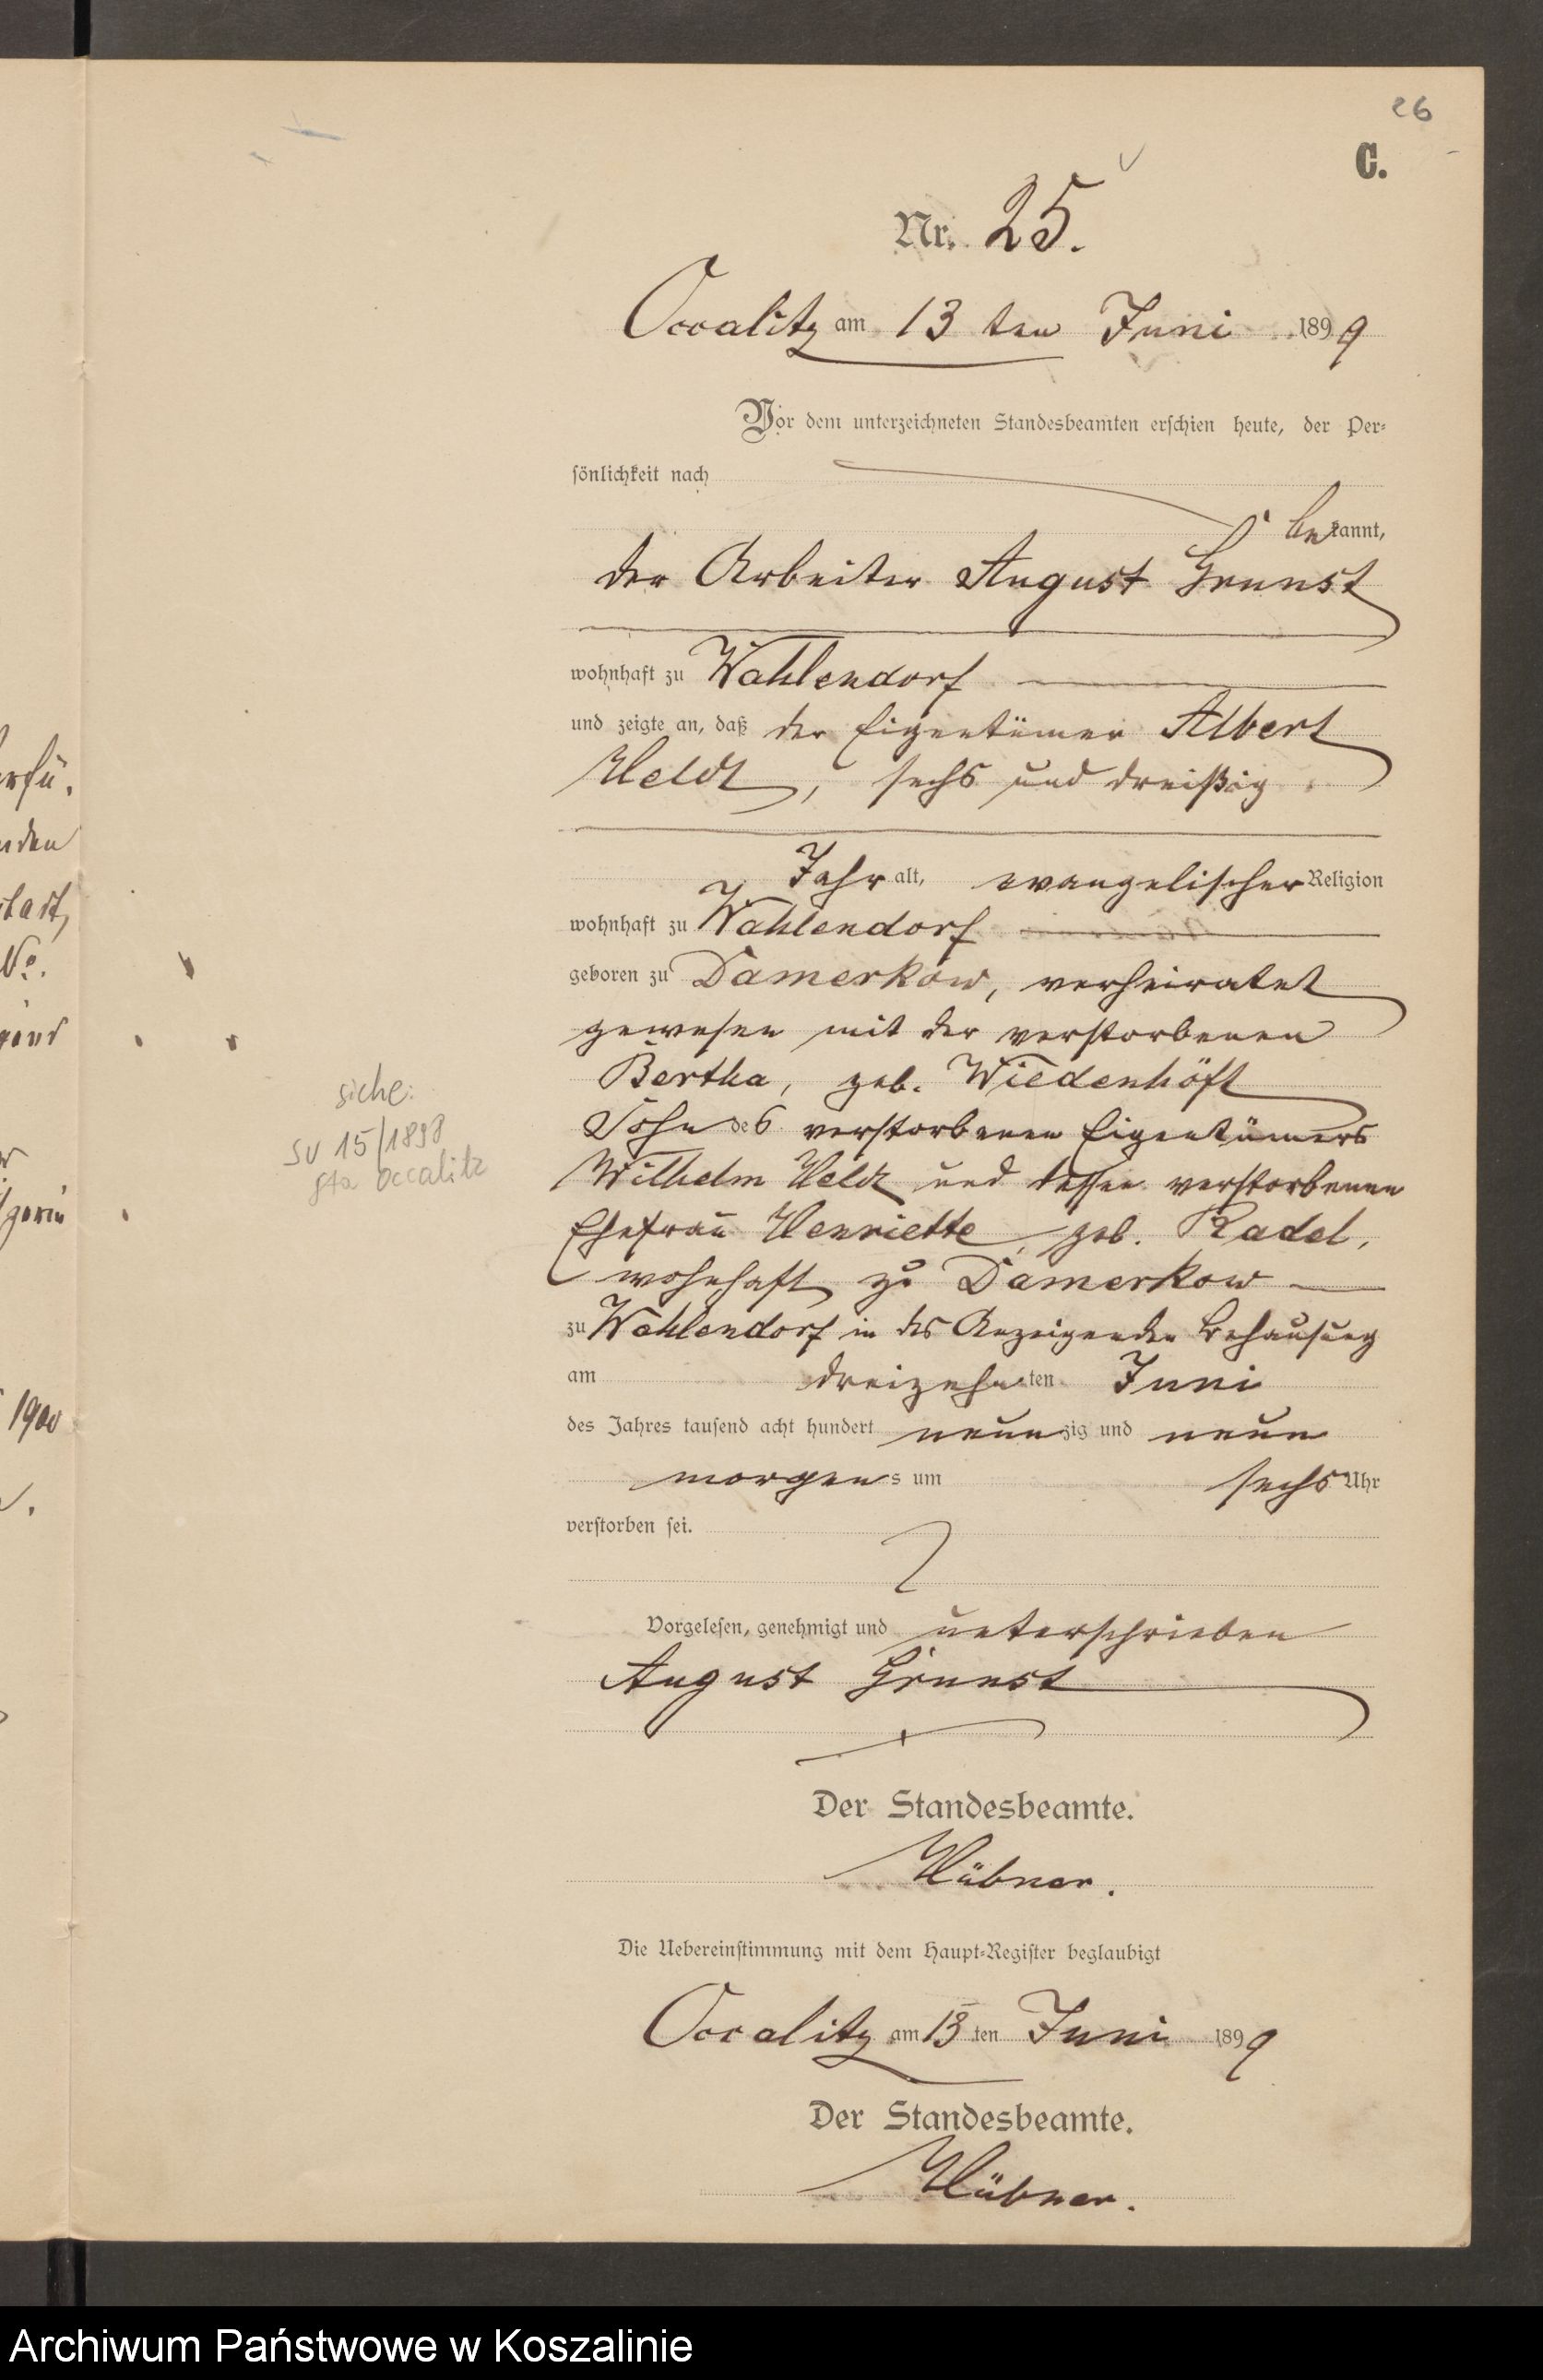 26
C.
Nr. 25.
Occalitz am 13 ten Juni 1899
Vor dem unterzeichneten Standesbeamten erschien heute, der Per-
sönlichkeit nach
bekannt,
der Arbeiter August Grunst
wohnhaft zu Wahlendorf
und zeigte an, daß der Eigentümer Albert
Heldt, sechs und dreißig
Jahr alt, evangelischer Religion
wohnhaft zu Wahlendorf
geboren zu Damerkow, verheiratet
gewesen mit der verstorbenen
Bertha, geb. Wiedenhöft
Sohn des verstorbenen Eigentümers
Wilhelm Heldt und dessen verstorbenen
Ehefrau Henriette, geb. Radel,
wohnhaft zu Damerkow
zu Wahlendorf in des Anzeigenden Behausung
am dreizehnten Juni
des Jahres tausend acht hundert neunzig und neun
morgens um sechs Uhr
verstorben sei.
Vorgelesen, genehmigt und unterschrieben
August Grunst
Der Standesbeamte.
Hübner.
Die Uebereinstimmung mit dem Haupt-Register beglaubigt
Occalitz am 13 ten Juni 1899
Der Standesbeamte.
Hübner.
siehe:
SU 15/1898
Sta Occalitz
1900
Archiwum Państwowe w Koszalinie